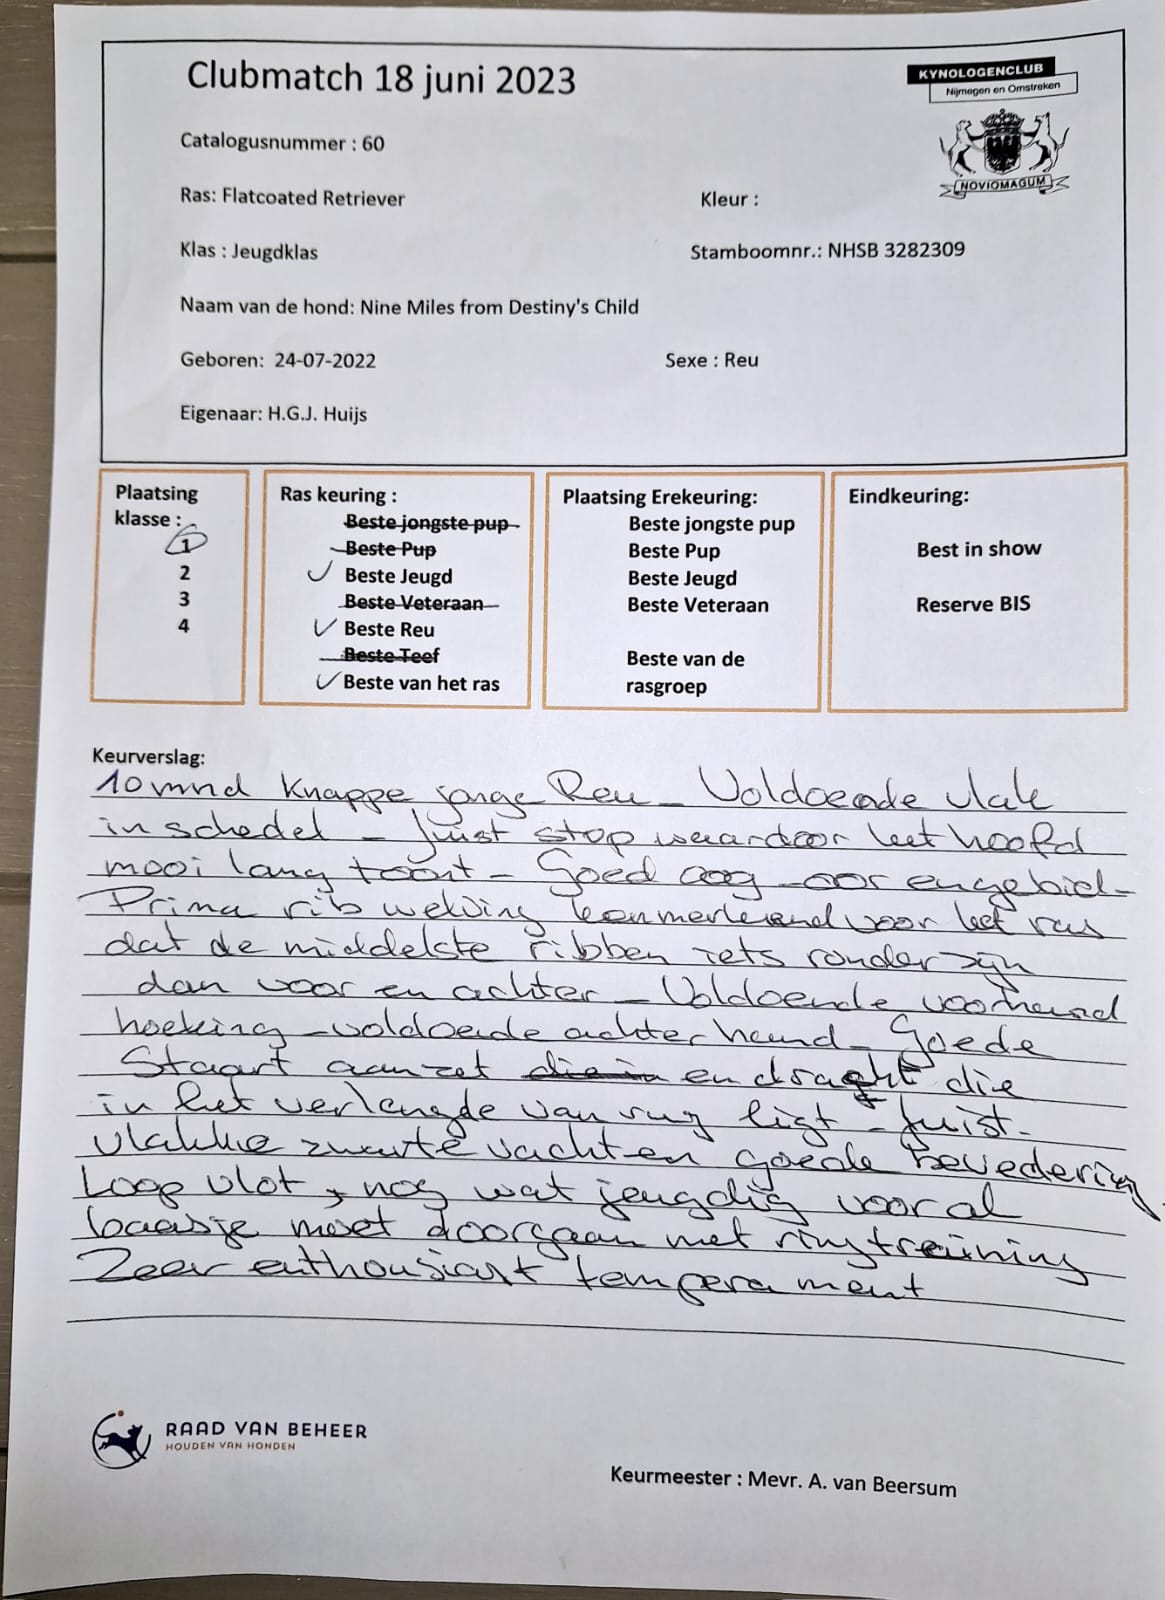 Clubmatch 18 juni 2023
KYNOLOGENCLUB
Nijmegen en Omstreken
NOVIOMAGUM
Catalogusnummer : 60
Ras: Flatcoated Retriever
Kleur :
Klas : Jeugdklas
Stamboomnr.: NHSB 3282309
Naam van de hond: Nine Miles from Destiny's Child
Geboren: 24-07-2022
Sexe : Reu
Eigenaar: H.G.J. Huijs
Plaatsing
klasse :
1
2
3
4
Ras keuring :
Beste jongste pup
Beste Pup
Beste Jeugd
Beste Veteraan
Beste Reu
Beste Teef
Beste van het ras
Plaatsing Erekeuring:
Beste jongste pup
Beste Pup
Beste Jeugd
Beste Veteraan
Beste van de
rasgroep
Eindkeuring:
Best in show
Reserve BIS
Keurverslag:
10 mnd Knappe jonge Reu - Voldoende vlak
in schedel - Juist stop waardoor het hoofd
mooi lang toont - Goed oog - oor en gebid -
Prima rib welving kenmerkend voor het ras
dat de middelste ribben iets ronder zijn
dan voor en achter - Voldoende voorhand
hoeking - voldoende achterhand - Goede
Staart aanzet die in en dracht die
in het verlengde van rug ligt - Juist -
vlakke zwarte vacht en goede bevedering.
Loop vlot, nog wat jeugdig vooral
baasje moet doorgaan met ringtraining
Zeer enthousiast temperament
RAAD VAN BEHEER
HOUDEN VAN HONDEN
Keurmeester : Mevr. A. van Beersum